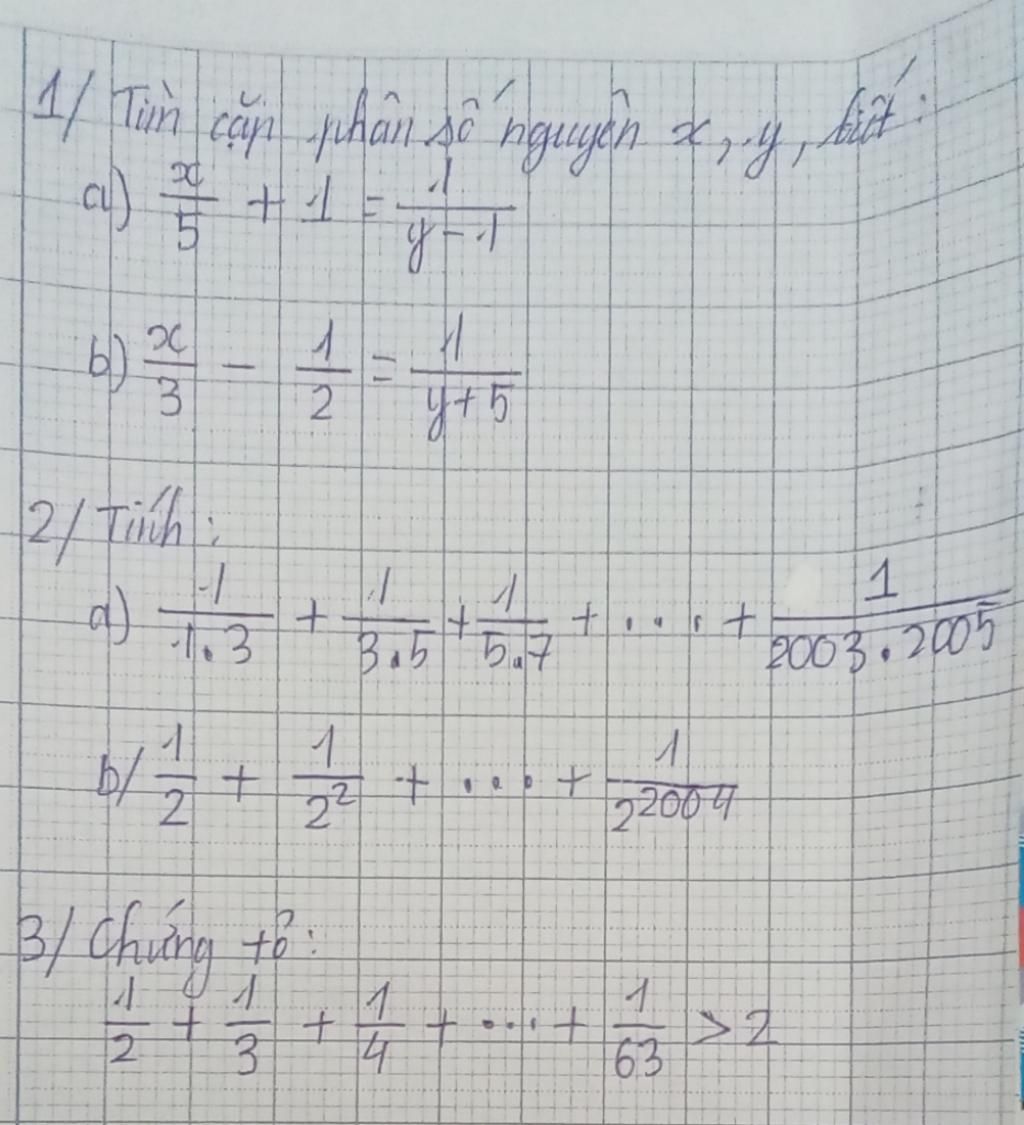 1/ Tìm cặp phân số nguyên x, y, biết:
a) x/5 + 1 = 1/(y-1)
b) x/3 - 1/2 = 1/(y+5)
2/ Tính:
a) 1/(1.3) + 1/(3.5) + 1/(5.7) + .... + 1/(2003.2005)
b/ 1/2 + 1/2² + .... + 1/2²⁰⁰⁴
3/ Chứng tỏ:
1/2 + 1/3 + 1/4 + .... + 1/63 > 2